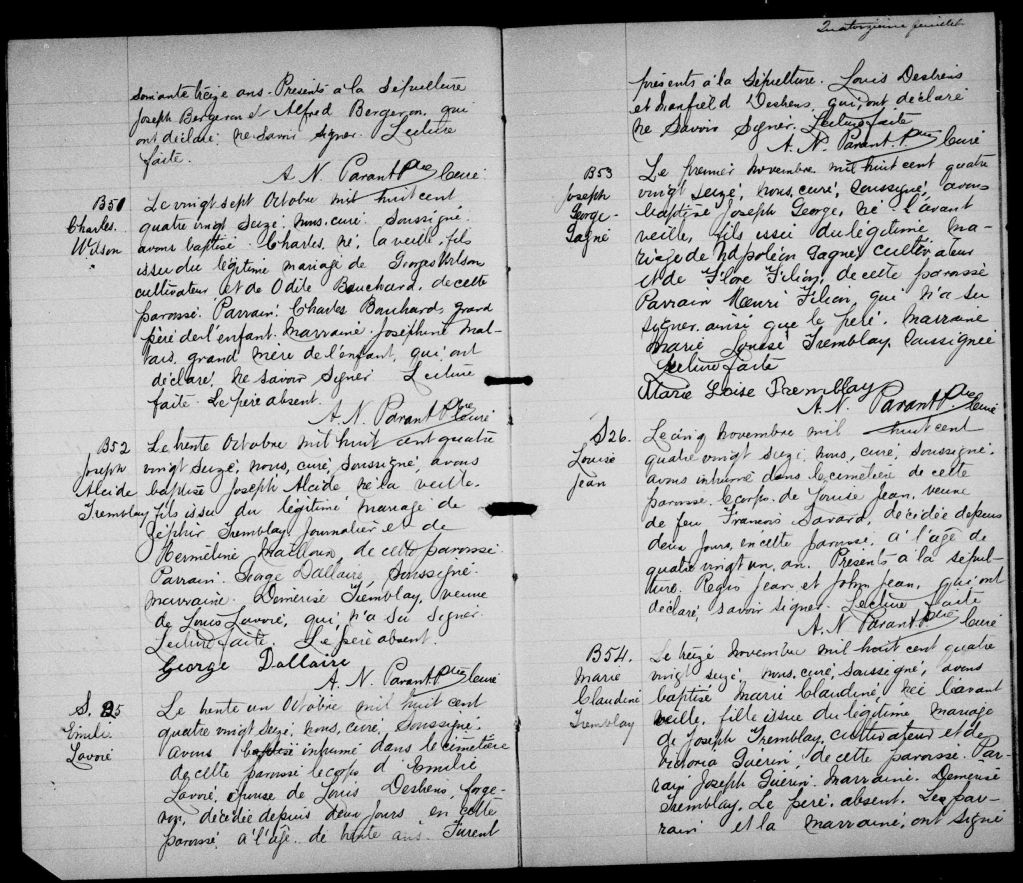 Soixante treize ans. Présents à la Sépulture
Joseph Bergeron et Alfred Bergeron, qui
ont déclaré ne savoir signer. Lecture
faite.
A. N. Parant Ptre Curé
B51
Charles
Wilson
Le vingt sept Octobre mil huit cent
quatre vingt seize, nous, curé, soussigné
avons baptisé Charles, né, la veille, fils
issu du légitime mariage de Georges Wilson
cultivateur et de Odile Bouchard, de cette
paroisse. Parrain, Charles Bouchard, grand
père de l'enfant. Marraine Joséphine Mal-
tais, grand mère de l'enfant, qui, ont
déclaré, ne savoir signer Lecture
faite. Le père absent.
A. N. Parant Ptre Curé
B52
Joseph
Alcide
Tremblay
Le trente Octobre mil huit cent quatre
vingt seize, nous, curé, soussigné, avons
baptisé Joseph Alcide né la veille.
fils issu du légitime mariage de
Zéphir Tremblay, Journalier et de
Herméline Mailloux, de cette paroisse
Parrain George Dallaire, soussigné.
marraine. Démerise Tremblay, veuve
de Louis Lavoie, qui, n'a su signer.
Lecture faite. Le père absent.
George Dallaire
A. N. Parant Ptre Curé
S. 25
Emilie
Lavoie
Le trente un Octobre mil huit cent
quatre vingt seize, nous, curé, soussigné.
avons baptisé inhumé dans le cimetière
de cette paroisse le corps d'Emilie
Lavoie, épouse de Louis Desbiens, forge-
ron, décédée depuis deux jours en cette
paroisse, à l'âge de trente ans. Furent
Quatorzième feuillet
présents à la Sépulture. Louis Desbiens
et Desbiens, qui, ont déclaré
ne savoir signer. Lecture faite
A. N. Parant. Ptre Curé
B53
Joseph
George
Gagné
Le premier novembre mil huit cent quatre
vingt seize, nous, curé, soussigné, avons
baptisé Joseph George, né l'avant
veille, fils issu du légitime ma-
riage de Napoléon Gagné, cultivateur
et de Flore Filion, de cette paroisse
Parrain Henri Filion, qui n'a su
signer ainsi que le père. Marraine
Marie Louise Tremblay, soussignée
Lecture faite
Marie Loise Tremblay
A. N. Parant Ptre Curé
S26.
Louise
Jean
Le cinq novembre mil huit cent
quatre vingt seize, nous, curé, soussigné.
avons inhumé dans le cimetière de cette
paroisse le corps de Louise Jean, veuve
de feu François Savard, décédée depuis
deux jours, en cette paroisse, à l'âge de
quatre vingt un, an. Présents à la sépul-
ture. Régis Jean et John Jean, qui, ont
déclaré, savoir signer. Lecture faite
A. N Parant P.tre Curé
B54.
Marie
Claudine
Tremblay
Le treize novembre mil huit cent quatre
vingt seize, nous, curé, soussigné, avons
baptisé Marie Claudine, née l'avant
veille, fille issue du légitime mariage
de Joseph Tremblay, cultivateur et de
Victoria Guérin, de cette paroisse. Par-
rain Joseph Guérin. Marraine. Démerise
Tremblay. Le père absent. Le par-
rain et la marraine, ont signé